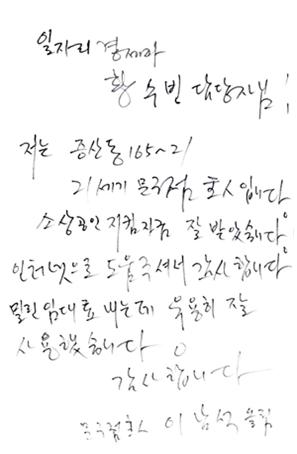 일자리 경제과
황수빈 담당자님!
저는 증산동 165~21
21세기 문구점 호인입니다
소상공인 지킴자금 잘 받았습니다
인터넷으로 도움주셔서 감사합니다
밀린 임대료 내는데 유용히 잘
사용했습니다
감사합니다
문구점 이남석 올림